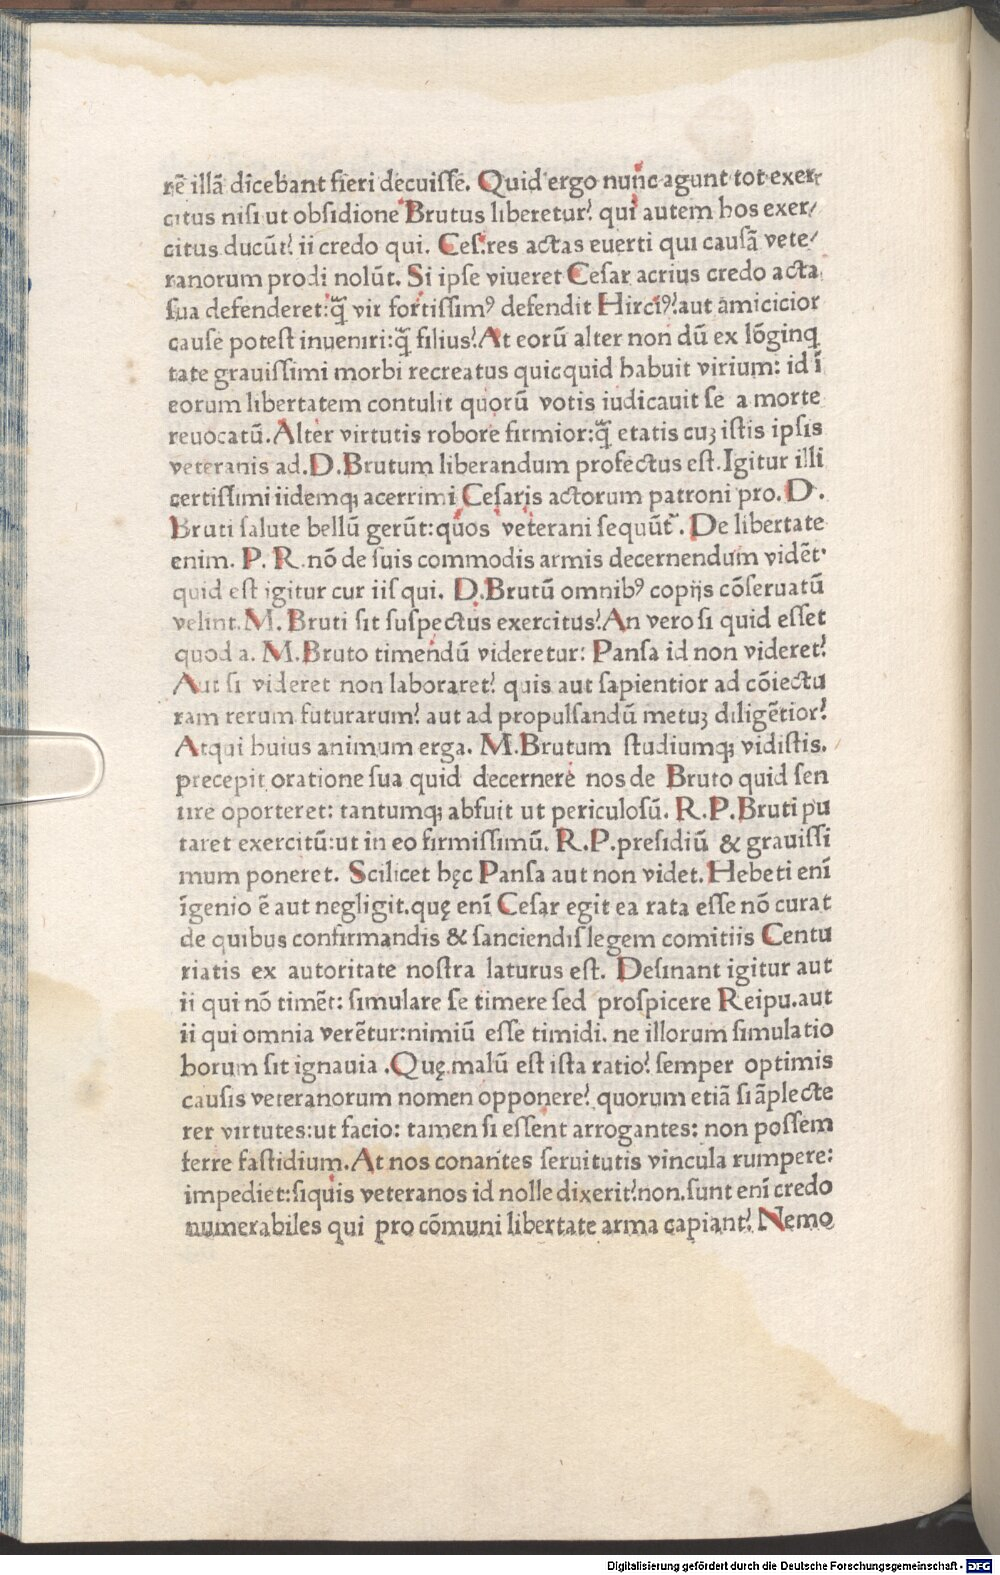 rē illā dicebant fieri decuisse. Quid ergo nunc agunt tot exer-
citus nisi ut obsidione Brutus liberetur? qui autem hos exer/
citus ducūt? ii credo qui. Cesares actas euerti qui causā vete/
ranorum prodi nolūt. Si ipse viueret Cesar acrius credo acta
sua defenderet:q̄̃ vir fortissimꝰ defendit Hirciꝰ?aut amicicior
cause potest inueniri:q̄̃ filius?At eorū alter non dū ex lōginq
tate grauissimi morbi recreatus quicquid habuit virium: id ī
eorum libertatem contulit quorū votis iudicauit se a morte
reuocatū.Alter virtutis robore firmior:q̄̃ etatis cuꝫ istis ipsis
veteranis ad.D.Brutum liberandum profectus est.Igitur illi
certissimi iidemqꝫ acerrimi Cesaris actorum patroni pro.D.
Bruti salute bellū gerūt:quos veterani sequūt᷑. De libertate
enim. P. R.nō de suis commodis armis decernendum vidēt᷑
quid est igitur cur iis qui. D.Brutū omnibꝰ copijs cōseruatū
velint.M. Bruti sit suspectus exercitus?An vero si quid esset
quod a. M.Bruto timendū videretur: Pansa id non videret?
Aut si videret non laboraret? quis aut sapientior ad cōiectu
ram rerum futurarum? aut ad propulsandū metuꝫ diligētior?
Atqui huius animum erga. M.Brutum studiumqꝫ vidistis.
precepit oratione sua quid decernere nos de Bruto quid sen
tire oporteret: tantumqꝫ abfuit ut periculosū. R.P.Bruti pu
taret exercitū:ut in eo firmissimū. R.P.presidiū & grauissi
mum poneret. Scilicet hęc Pansa aut non videt. Hebeti enī
īgenio ē aut negligit.quę enī Cesar egit ea rata esse nō curat
de quibus confirmandis & sanciendis legem comitiis Centu
riatis ex autoritate nostra laturus est. Desinant igitur aut
ii qui nō timēt: simulare se timere sed prospicere Reipu.aut
ii qui omnia verētur:nimiū esse timidi. ne illorum simulatio
horum sit ignauia .Quę malū est ista ratio? semper optimis
causis veteranorum nomen opponere? quorum etiā si āplecte
rer virtutes:ut facio: tamen si essent arrogantes: non possem
ferre fastidium.At nos conantes seruitutis vincula rumpere:
impediet:siquis veteranos id nolle dixerit?non.sunt enī credo
numerabiles qui pro cōmuni libertate arma capiant? Nemo
Digitalisierung gefördert durch die Deutsche Forschungsgemeinschaft - DFG